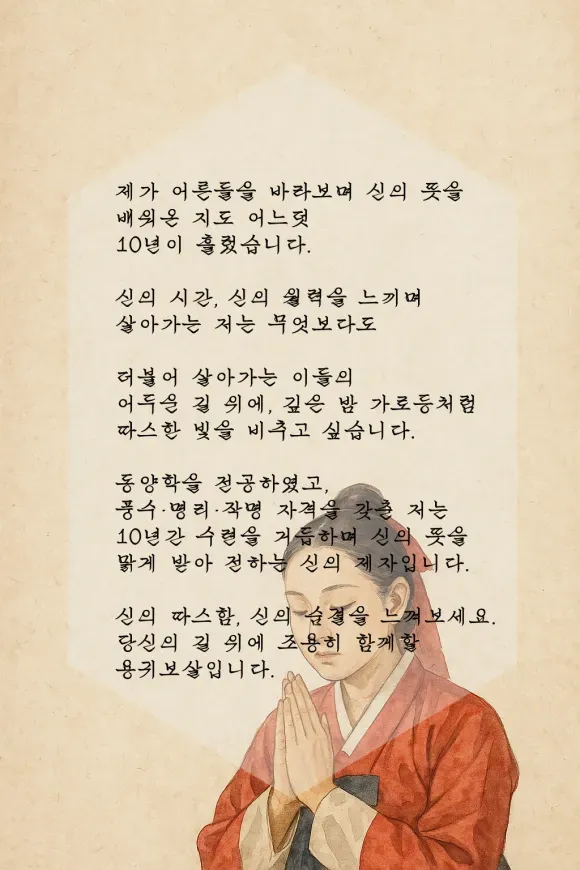 제가 어른들을 바라보며 신의 뜻을
배워온 지도 어느덧
10년이 흘렀습니다.
신의 시간, 신의 월력을 느끼며
살아가는 저는 무엇보다도
더불어 살아가는 이들의
어두운 길 위에, 깊은 밤 가로등처럼
따스한 빛을 비추고 싶습니다.
동양학을 전공하였고,
풍수·명리·작명 자격을 갖춘 저는
10년간 수련을 거듭하며 신의 뜻을
맑게 받아 전하는 신의 제자입니다.
신의 따스함, 신의 숨결을 느껴보세요.
당신의 길 위에 조용히 함께할
용궁보살입니다.